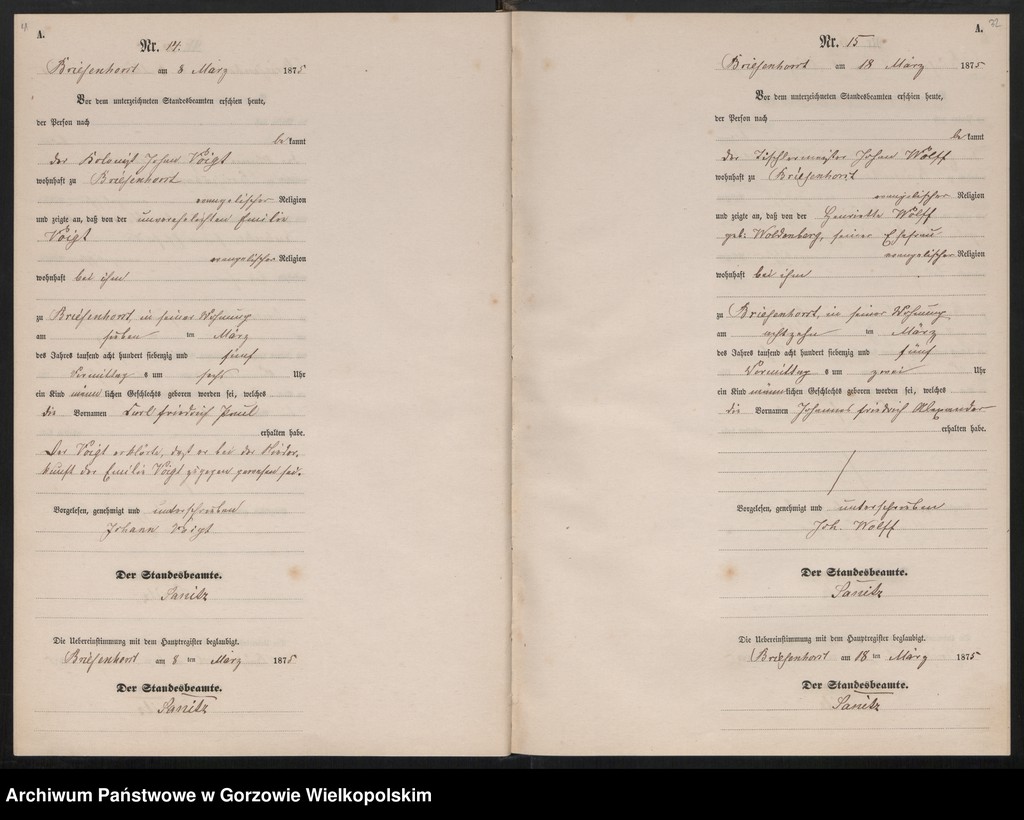 A.
Nr. 14.
Briesenhorst am 8 März 1875
Vor dem unterzeichneten Standesbeamten erschien heute,
der Person nach
bekannt
der Kolonist Johan Voigt
wohnhaft zu Briesenhorst
evangelischer Religion
und zeigte an, daß von der unverehelichten Emilie
Voigt
evangelischer Religion
wohnhaft bei ihm
zu Briesenhorst in seiner Wohnung
am sieben ten März
des Jahres tausend acht hundert siebenzig und fünf
Vormittag s um sechs Uhr
ein Kind männlichen Geschlechts geboren worden sei, welches
die Vornamen Carl Friedrich Paul
erhalten habe.
Der Voigt erklärte, daß er bei der Nieder-
kunft der Emilie Voigt zugegen gewesen sei.
Vorgelesen, genehmigt und unterschrieben
Johann Voigt
Der Standesbeamte.
Sanitz
Die Uebereinstimmung mit dem Hauptregister beglaubigt.
Briesenhorst am 8 ten März 1875
Der Standesbeamte.
Sanitz
A. 22
Nr. 15
Briesenhorst am 18 März 1875
Vor dem unterzeichneten Standesbeamten erschien heute,
der Person nach
bekannt
der Tischlermeister Johan Wolff
wohnhaft zu Briesenhorst
evangelischer Religion
und zeigte an, daß von der Henriette Wolff
geb: Woldenberg, seiner Ehefrau
evangelischer Religion
wohnhaft bei ihm
zu Briesenhorst, in seiner Wohnung
am achtzehn ten März
des Jahres tausend acht hundert siebenzig und fünf
Vormittag s um zwei Uhr
ein Kind männlichen Geschlechts geboren worden sei, welches
die Vornamen Johannes Friedrich Alexander
erhalten habe.
Vorgelesen, genehmigt und unterschrieben
Joh. Wolff
Der Standesbeamte.
Sanitz
Die Uebereinstimmung mit dem Hauptregister beglaubigt.
Briesenhorst am 18 ten März 1875
Der Standesbeamte.
Sanitz
Archiwum Państwowe w Gorzowie Wielkopolskim